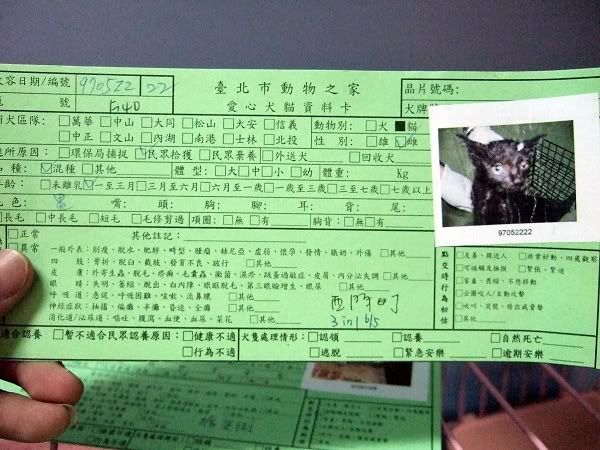 收容日期/編號 970522 22 臺北市動物之家 晶片號碼:
號 F140 愛心犬貓資料卡 犬牌
捕犬區隊: □萬華 □中山 □大同 □松山 □大安 □信義 動物別: □犬 ■貓
□中正 □文山 □內湖 □南港 □士林 □北投 性別: □雄 ☑雌
進所原因: □環保局捕捉 ☑民眾拾獲 □民眾棄養 □外送犬 □回收犬
種: ☑混種 □其他 體型: □大□中□小□幼 體重: Kg
年齡: □未離乳 ☑一至三月 □三月至六月 □六月至一歲 □一歲至三歲 □三至七歲 □七歲以上
毛色: 黑 嘴: 頭: 胸: 腳: 耳: 背: 尾:
□長毛 □中長毛 □短毛 □毛修剪過 項圈: □無 □有 胸背: □無 □有
97052222
□正常 其他註記:
□異常 一般外觀: 削瘦、脫水、肥胖、畸型、腫瘤、赫尼亞、虛弱、懷孕、發情、眼奶、外傷 □其他
四肢: 骨折、脫臼、截肢、發育不良、跛行 □其他
皮膚: 外寄生蟲、脫毛、疥癬、毛囊蟲、黴菌、濕疹、跳蚤過敏症、皮屑、內分泌失調 □其他
眼睛: 失明、萎縮、脫出、白內障、眼眶脫毛、第三眼瞼增生、眼屎 □其他
呼吸道: 急促、呼吸困難、咳嗽、流鼻膿 □其他
神經症狀: 抽搐、偏癱、半癱、昏迷、全癱 □其他
消化道/泌尿道: 嘔吐、腹瀉、血便、血尿、菜花 □其他
西門町
3 in 1 6/5
點交時行為初估
□友善、親近人 □非常好動、四處觀察
□可碰觸及撫摸 □緊張、緊迫
□害羞、畏縮、不想移動
□企圖咬人/主動攻擊
□吠叫、哭號、發出威脅聲
□其他
適合認養 □暫不適合民眾認養原因: □健康不適 犬隻處理情形: □認領 □認養 □自然死亡
□行為不適 □逃脫 □緊急安樂 □逾期安樂